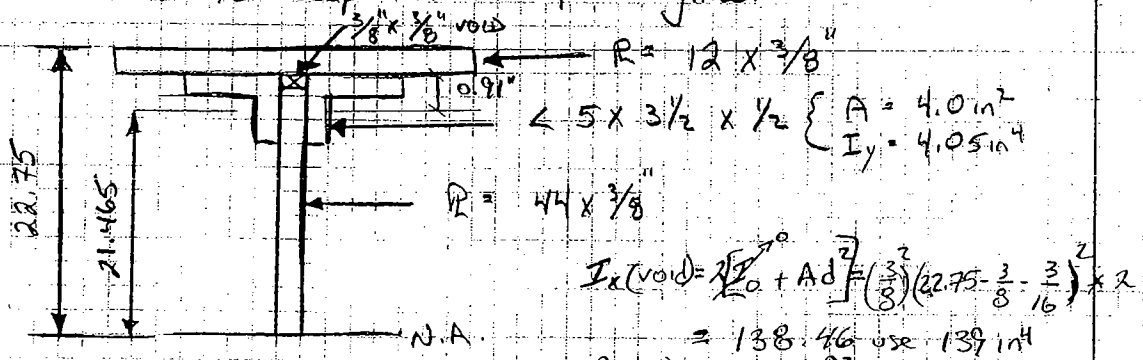 3/8" x 3/8" VOID
PL = 12 x 3/8"
0.91"
∠ 5 x 3 1/2 x 1/2 { A = 4.0 in²
Iy = 4.05 in⁴
22.75
21.465
PL = 44 x 3/8"
Ix (void) = 2[I₀ + Ad²] = (3/8)² (22.75 - 3/8 - 3/16)² x 2
0
= 138.46 use 139 in⁴
N.A.